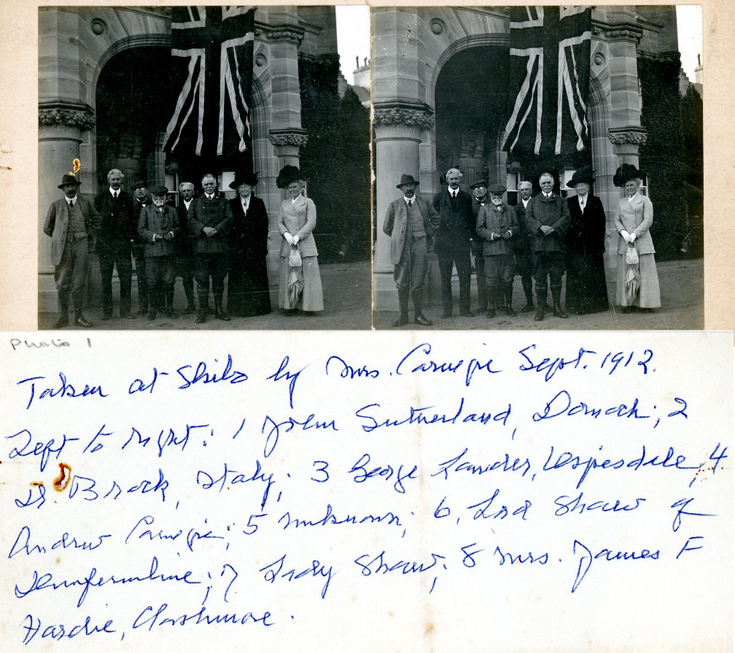 Photo 1
Taken at Skibo by Mrs. Carnegie Sept. 1912.
Left to right: 1 John Sutherland, Dornoch; 2
Dr. Brock, Italy; 3 George Lauder, 4.
Andrew Carnegie; 5 unknown; 6, Lord Shaw of
Dunfermline; 7 Lady Shaw; 8 Mrs. James F
Hardie, Clashmore.